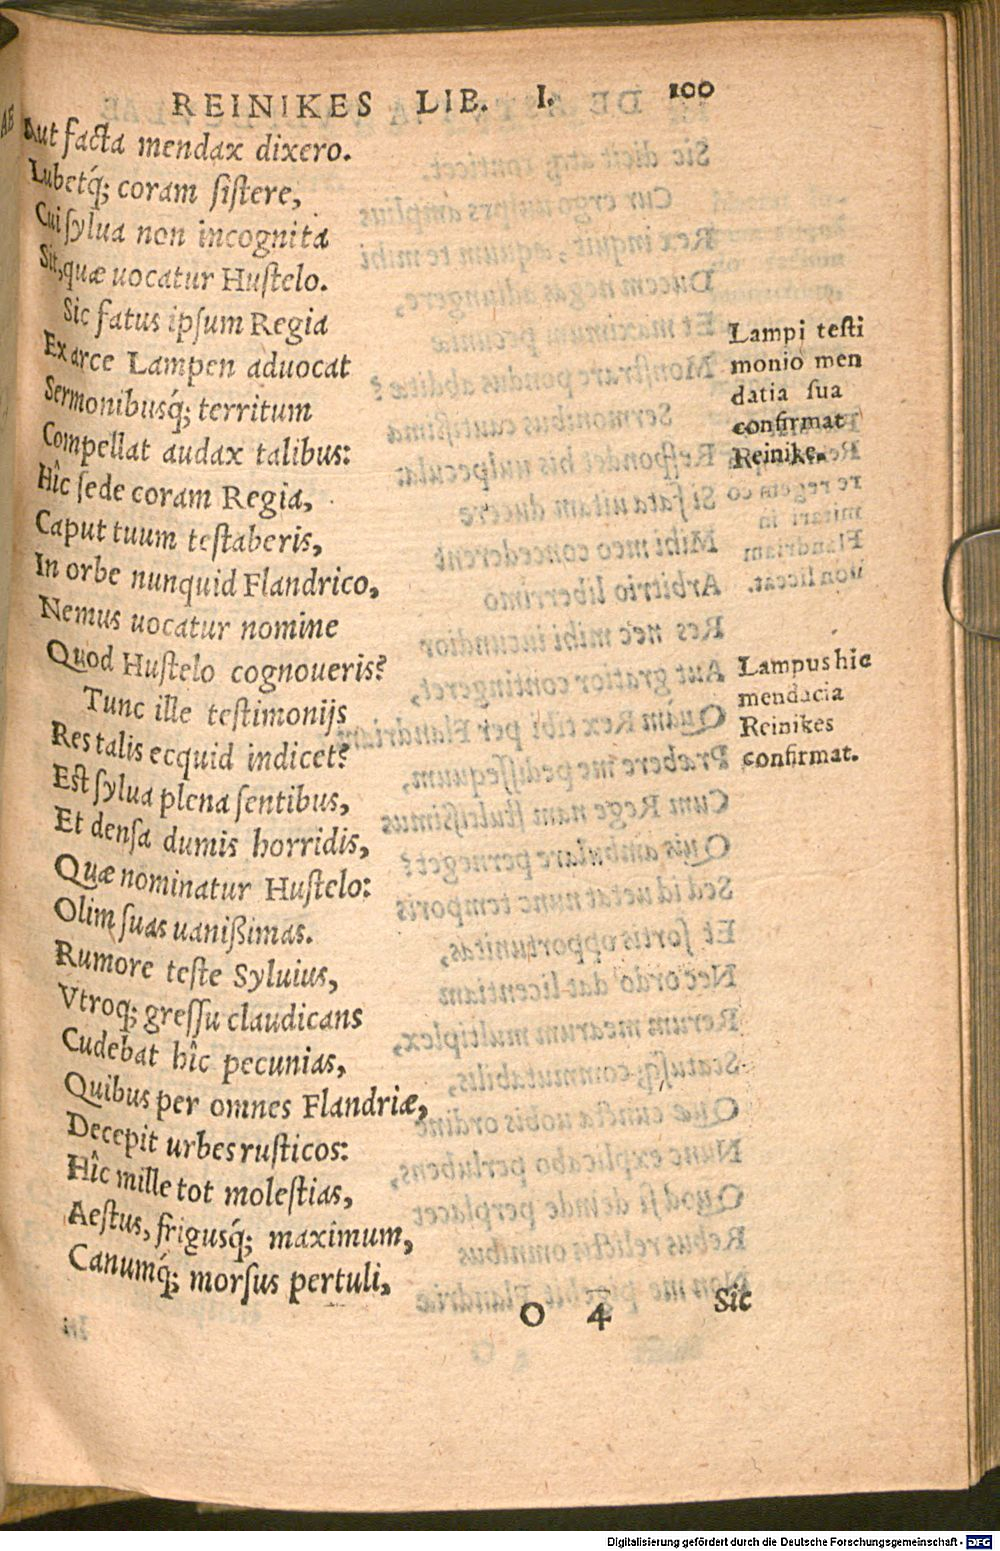 REINIKES LIB. I. 100
Aut facta mendax dixero.
Lubetq́; coram ſiſtere,
Cui ſylua non incognita
Sit, quæ uocatur Huſtelo.
Sic fatus ipſum Regia
Ex arce Lampen aduocat
Sermonibusq́; territum
Compellat audax talibus:
Hîc ſede coram Regia,
Caput tuum teſtaberis,
In orbe nunquid Flandrico,
Nemus uocatur nomine
Quod Huſtelo cognoueris?
Tunc ille teſtimonijs
Res talis ecquid indicet?
Eſt ſylua plena ſentibus,
Et denſa dumis horridis,
Quæ nominatur Huſtelo:
Olim ſuas uanißimas.
Rumore teſte Syluius,
Vtroq; greſſu claudicans
Cudebat hîc pecunias,
Quibus per omnes Flandriæ,
Decepit urbes ruſticos:
Hîc mille tot moleſtias,
Aeſtus, frigusq́; maximum,
Canumq́; morſus pertuli,
O 4 Sic
Lampi teſti
monio men
datia ſua
confirmat
Reinike.
Lampus hic
mendacia
Reinikes
confirmat.
Digitalisierung gefördert durch die Deutsche Forschungsgemeinschaft - DFG